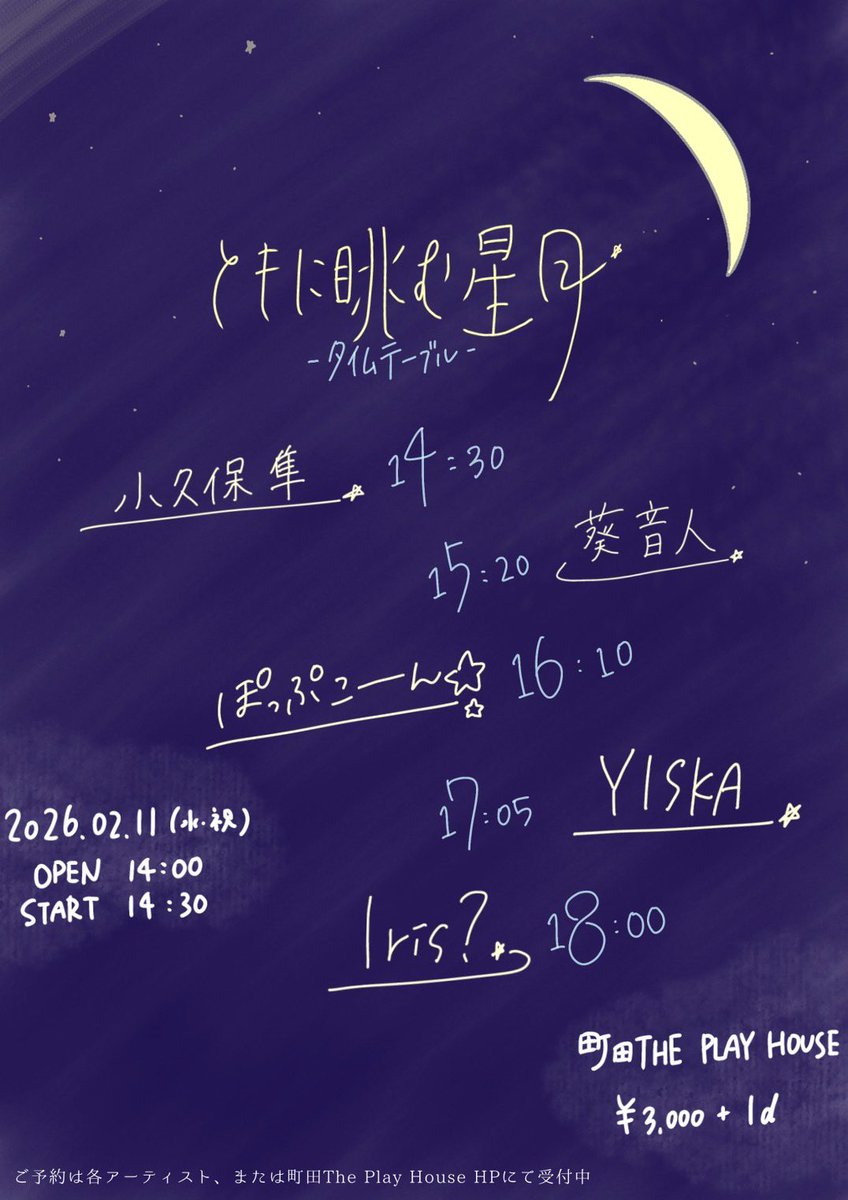 ともに眺む星月
-タイムテーブル-
小久保 隼 14:30
15:20 葵 音人
ぽっぷこーん☆ 16:10
17:05 YISKA
Iris? 18:00
2026.02.11(水・祝)
OPEN 14:00
START 14:30
町田THE PLAY HOUSE
¥3,000 + 1d
ご予約は各アーティスト、または町田The Play House HPにて受付中